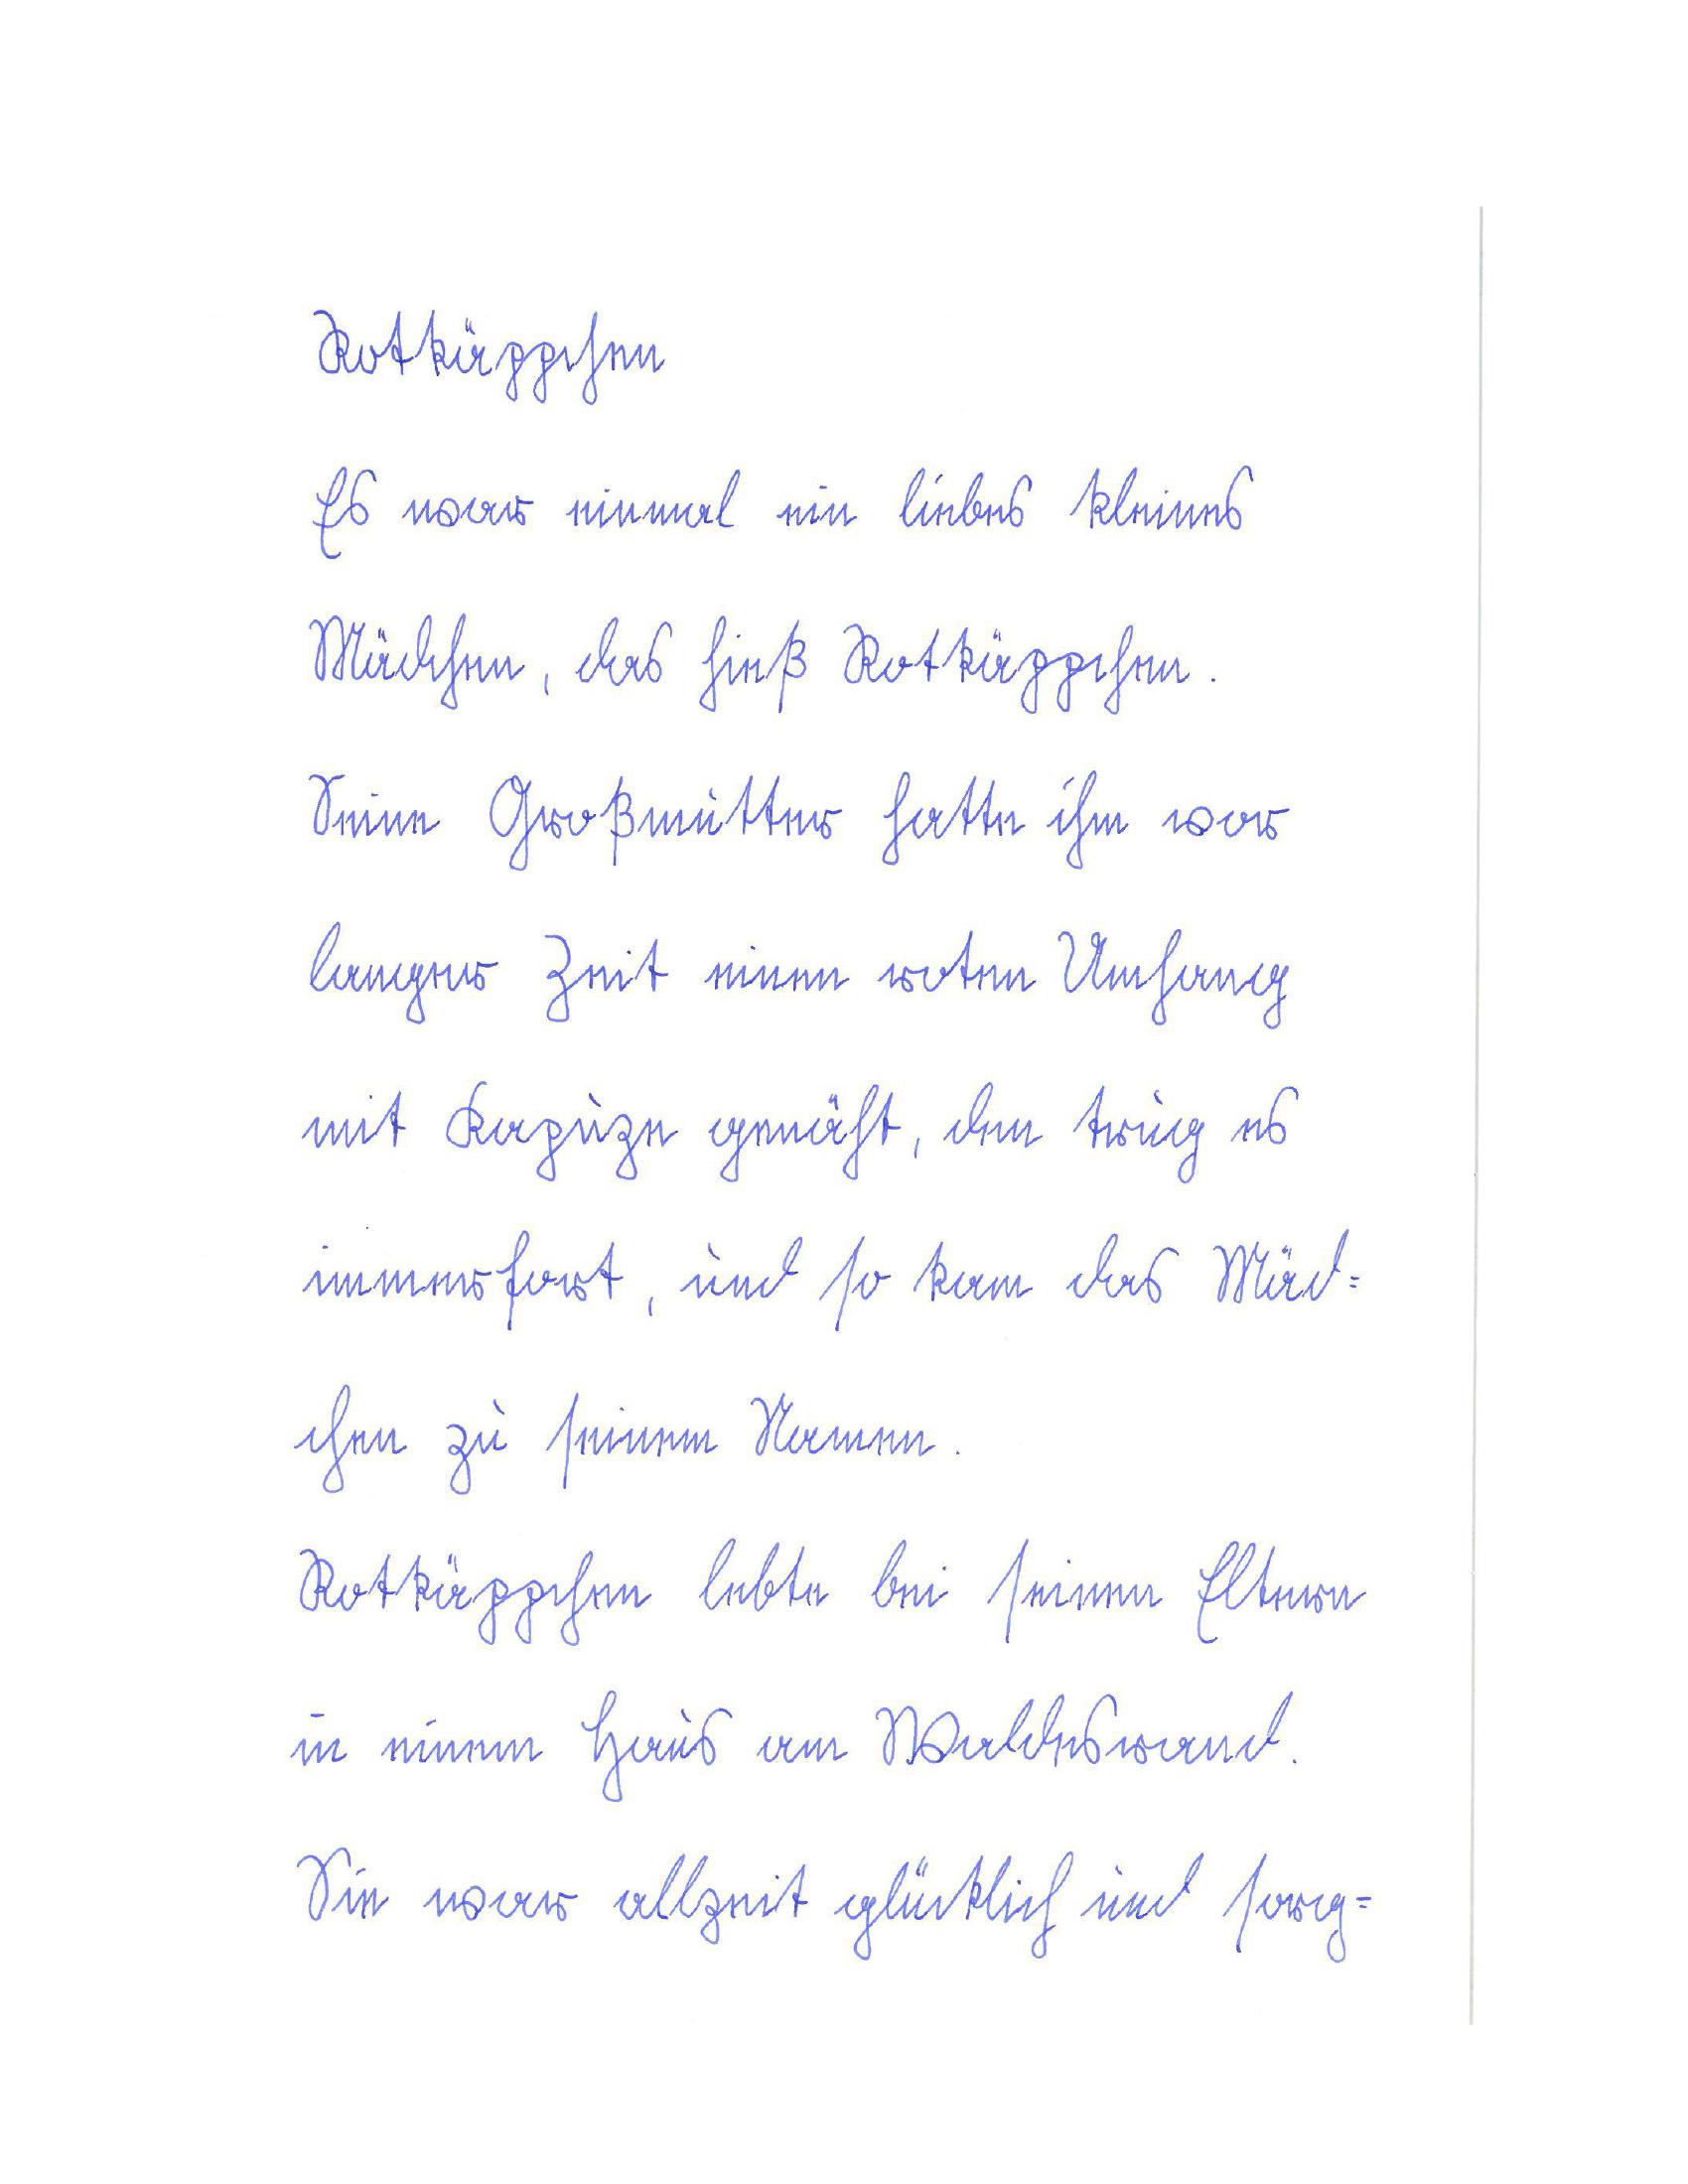 Rotkäppchen
Es war einmal ein liebes kleines
Mädchen, das hieß Rotkäppchen.
Seine Großmutter hatte ihm vor
langer Zeit einen roten Umhang
mit Kapuze genäht, den trug es
immerfort, und so kam das Mäd=
chen zu seinem Namen.
Rotkäppchen lebte bei seinen Eltern
in einem Haus am Waldesrand.
Sie war allzeit glücklich und sorg=